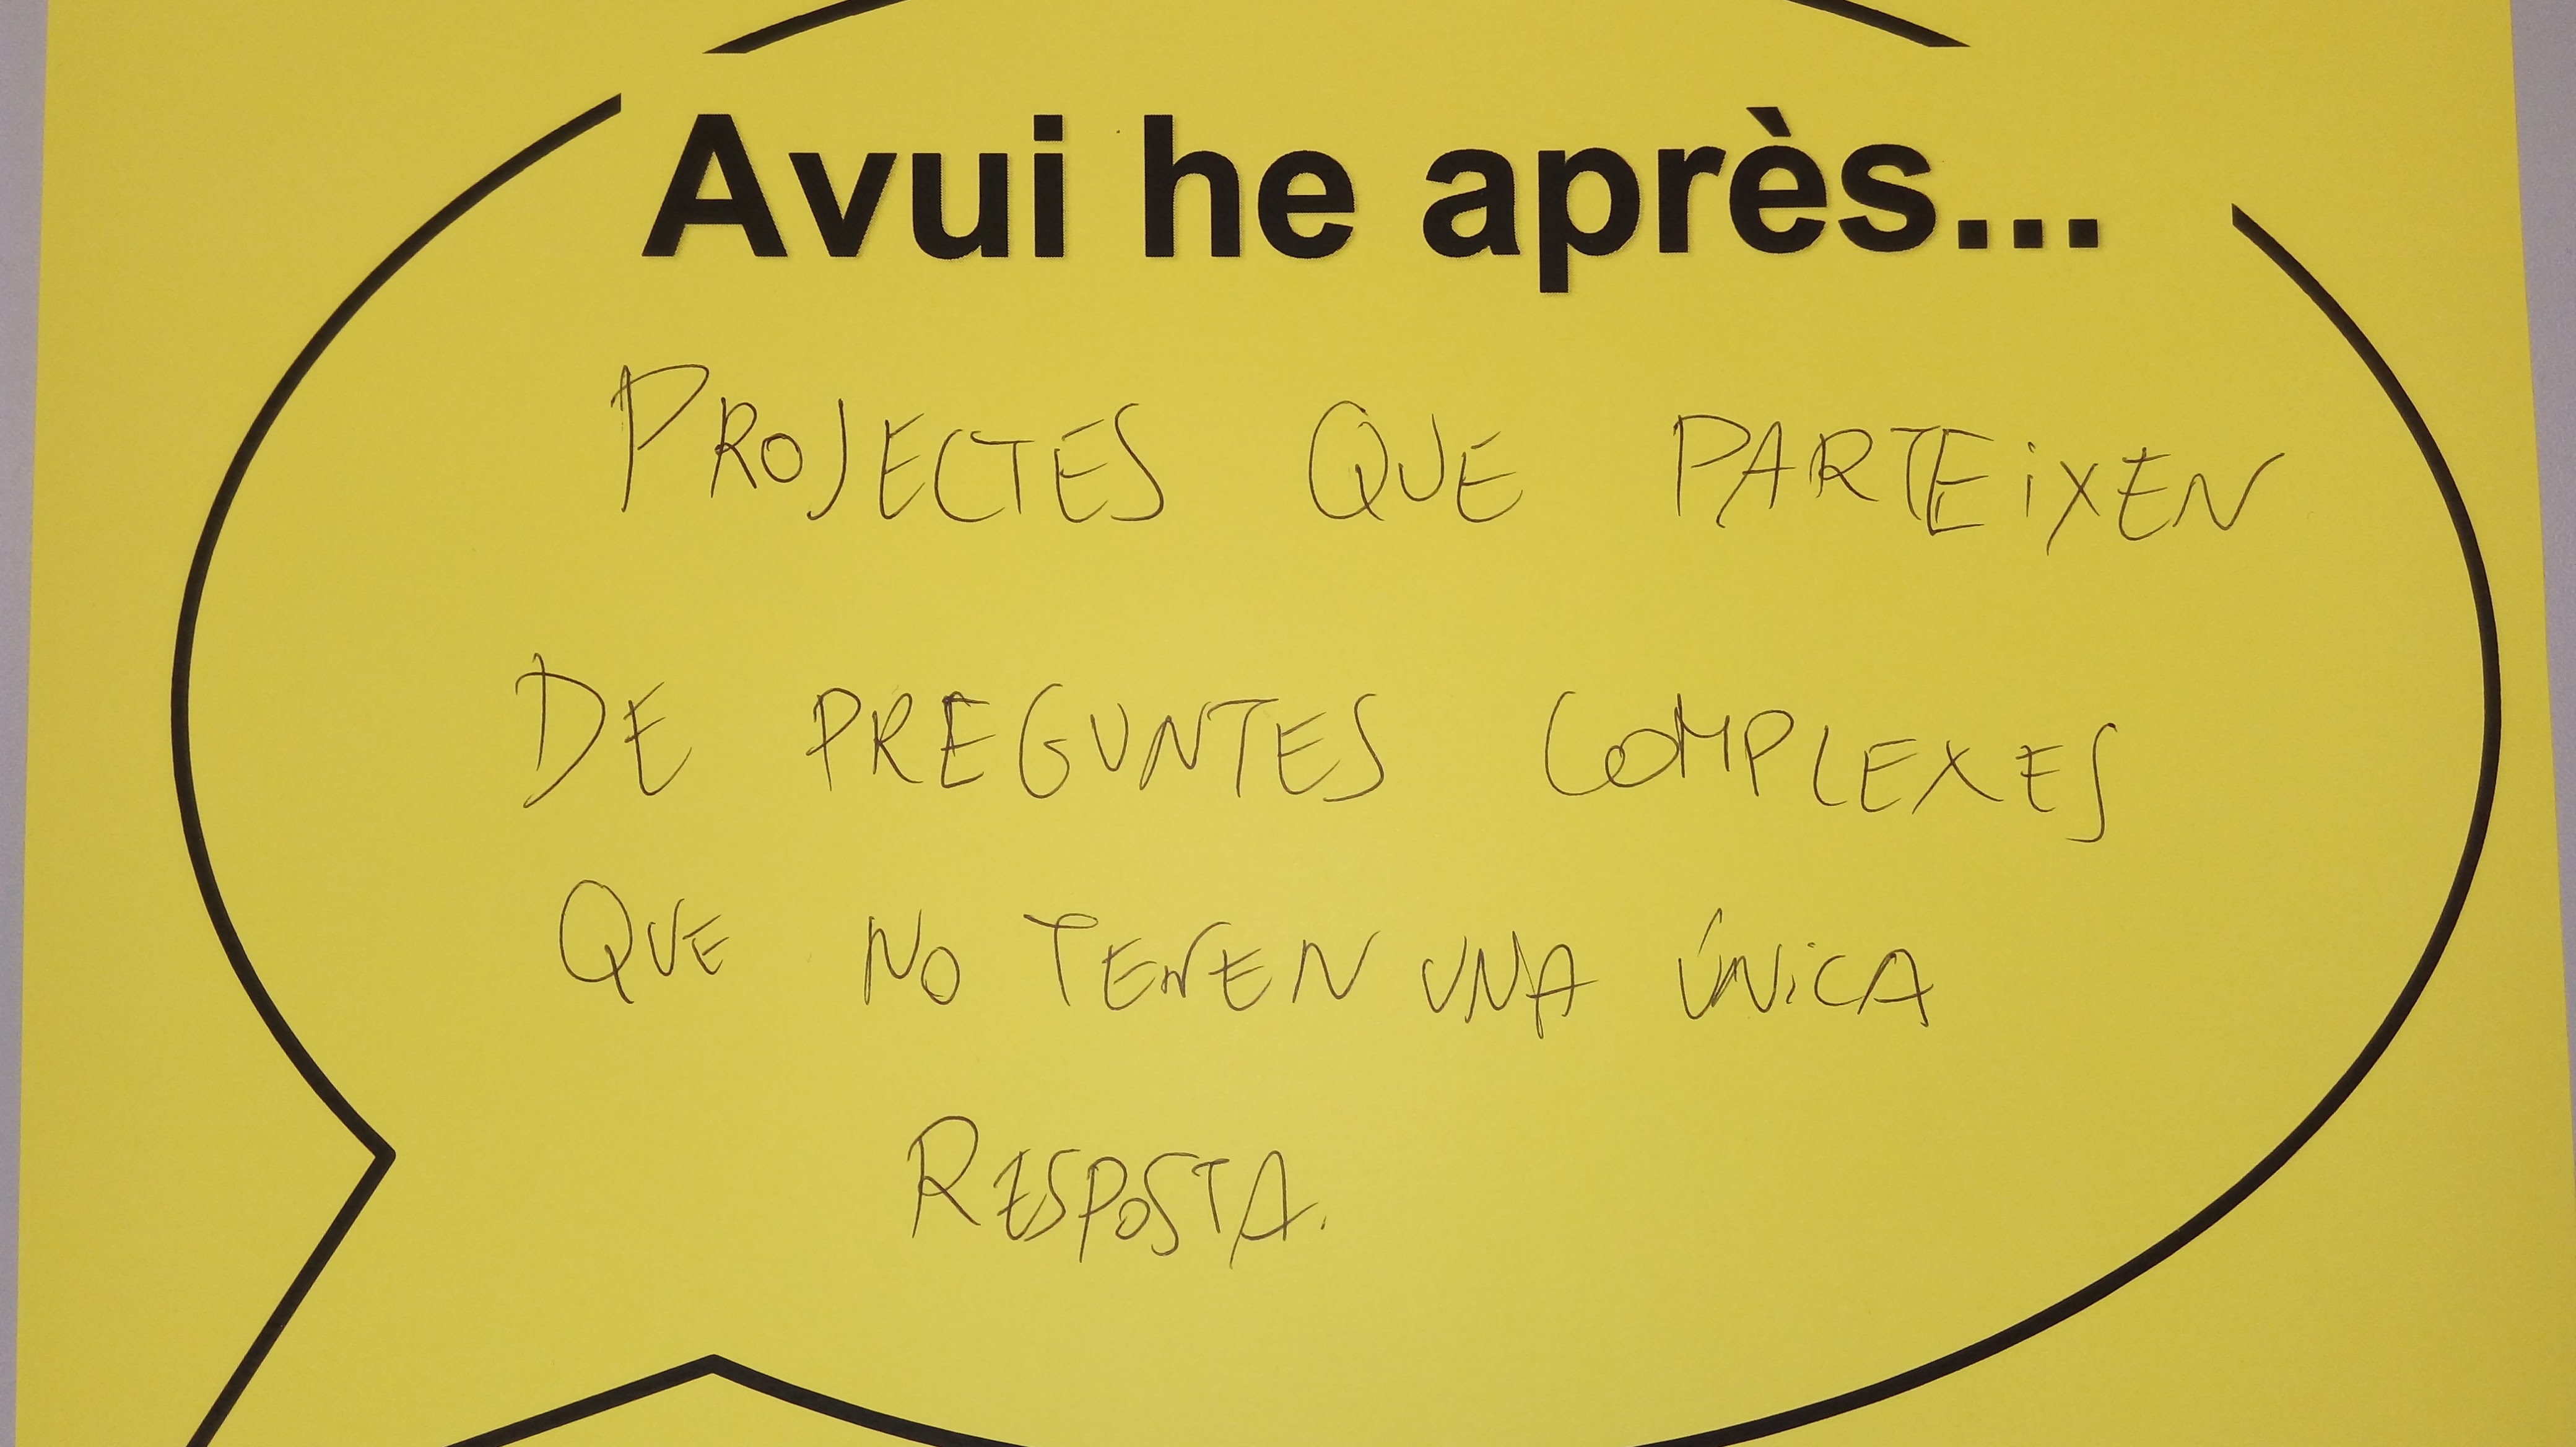 Avui he après...
PROJECTES QUE PARTEIXEN
DE PREGUNTES COMPLEXES
QUE NO TENEN UNA ÚNiCA
RESPOSTA.